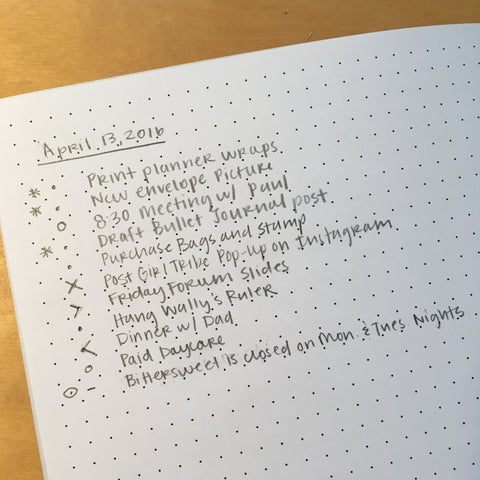 April 13, 2016
* • Print planner wraps
* • New Envelope Picture
o 8:30 Meeting w/ Paul
* • Draft Bullet Journal post
• Purchase Bags and Stamp
x Post Girl Tribe Pop-up on Instagram
> Friday Forum Slides
• Hang Wally's Ruler
< Dinner w/ Dad
• Paid Daycare
⊙ - Bittersweet is closed on Mon. & Tues. Nights